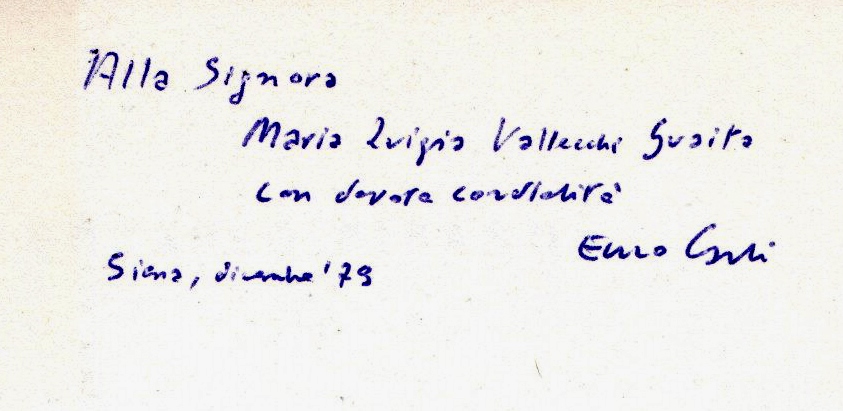 Alla Signora
Maria Luigia Vallecchi Guaita
con devota cordialità
Enzo Carli
Siena, dicembre '79